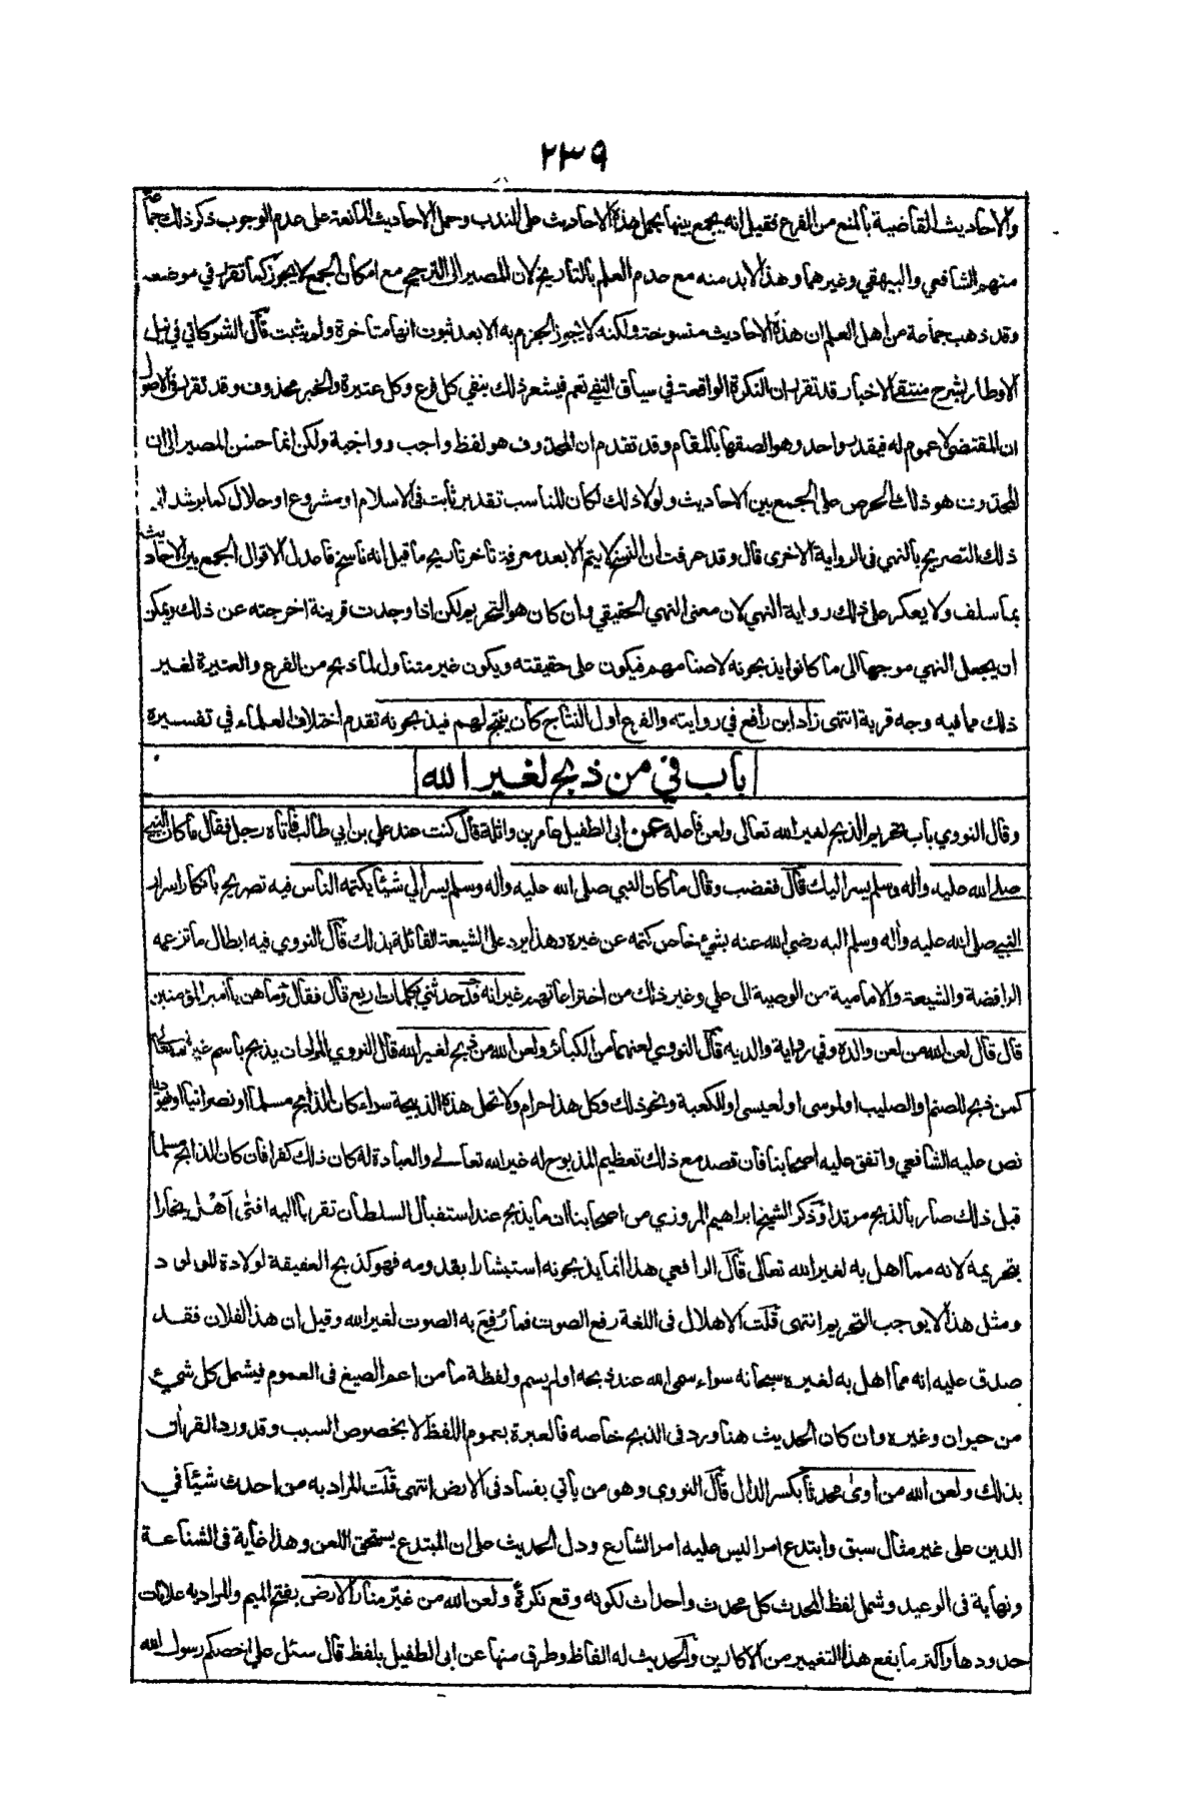 ٢٣٩
والاحاديث القاضية بالمنع من الفرع فقيل انه يجمع بينها بحمل هذه الاحاديث على الندب وحمل الاحاديث المانعة على عدم الوجوب ذكر ذلك جماعة
منهم الشافعي والبيهقي وغيرهما وهذا لابد منه مع عدم العلم بالتاريخ لان المصير الى الترجيح مع امكان الجمع لا يجوز كما تقرر في موضعه
وقد ذهب جماعة من اهل العلم ان هذه الاحاديث منسوخة ولكنه لا يجوز الجزم به الا بعد ثبوت انها متاخرة ولم يثبت قال الشوكاني في نيل
الاوطار شرح منتقى الاخبار قد تقرر ان النكرة الواقعة في سياق النفي تعم فيشعر ذلك بنفي كل فرع وكل عتيرة والخبر محذوف وقد تقرر في الاصول
ان المقتضى لا عموم له فيقدر واحد وهو الصقها بالمقام وقد تقدم ان المحذوف هو لفظ واجب وواجبة ولكن انما حسن المصير الى ان
المحذوف هو ذلك الحرص على الجمع بين الاحاديث ولولا ذلك لكان المناسب تقدير ثابت فى الاسلام او مشروع او حلال كما يرشد الى
ذلك التصريح بالنهي فى الرواية الاخرى قال وقد عرفت ان النسخ لا يتم الا بعد معرفة تاخر تاريخ ما قيل انه ناسخ فاعدل الاقوال الجمع بين الاحاديث
بما سلف ولا يعكر على ذلك رواية النهي لان معنى النهي الحقيقي وان كان هو التحريم لكن اذا وجدت قرينة اخرجته عن ذلك ويمكن
ان يجعل النهي موجها الى ما كانوا يذبحونه لاصنامهم فيكون على حقيقته ويكون غير متناول لما ذبح من الفرع والعتيرة لغير
ذلك مما فيه وجه قربة انتهى زاد ابن رافع في روايته والفرع اول النتاج كان ينتج لهم فيذبحونه تقدم اختلاف العلماء في تفسيره
باب في من ذبح لغير الله
وقال النووي باب تحريم الذبح لغير الله تعالى ولعن فاعله عن ابى الطفيل عامر بن واثلة قال كنت عند علي بن ابي طالب فاتاه رجل فقال ما كان النبي
صلى الله عليه واله وسلم يسر اليك قال فغضب وقال ما كان النبي صلى الله عليه واله وسلم يسر الي شيئا يكتمه الناس فيه تصريح بانكار اسرار
النبي صلى الله عليه واله وسلم اليه رضي الله عنه بشئ خاص كتمه عن غيره وهذا يرد على الشيعة القائلة بذلك قال النووي فيه ابطال ما تزعمه
الرافضة والشيعة والامامية من الوصية الى علي وغير ذلك من اختراعاتهم غير انه قد حدثني بكلمات اربع قال فقال وما هن يا امير المؤمنين
قال قال لعن الله من لعن والده وفي رواية والديه قال النووي لعنهما من الكبائر ولعن الله من ذبح لغير الله قال النووي المراد ان يذبح باسم غير اسم الله تعالى
كمن ذبح للصنم او الصليب او لموسى او لعيسى او للكعبة ونحو ذلك وكل هذا حرام ولا تحل هذه الذبيحة سواء كان الذابح مسلما او نصرانيا او يهوديا
نص عليه الشافعي واتفق عليه اصحابنا فان قصد مع ذلك تعظيم المذبوح له غير الله تعالى والعبادة له كان ذلك كفرا فان كان الذابح مسلما
قبل ذلك صار بالذبح مرتدا وذكر الشيخ ابراهيم المروزي من اصحابنا ان ما يذبح عند استقبال السلطان تقربا اليه افتى اهل بخارا
بتحريمه لانه مما اهل به لغير الله تعالى قال الرافعي هذا انما يذبحونه استبشارا بقدومه فهو كذبح العقيقة لولادة المولود
ومثل هذا لا يوجب التحريم انتهى قلت الاهلال فى اللغة رفع الصوت فما رُفِعَ به الصوت لغير الله وقيل ان هذا لفلان فقد
صدق عليه انه مما اهل به لغيره سبحانه سواء سمى الله عند ذبحه او لم يسم ولفظة ما من اعم الصيغ فى العموم فيشمل كل شيء
من حيوان وغيره وان كان الحديث هنا ورد فى الذبح خاصه فالعبرة بعموم اللفظ لا بخصوص السبب وقد ورد القران
بذلك ولعن الله من اوى محدثا بكسر الدال قال النووي وهو من ياتي بفساد فى الارض انتهى قلت المراد به من احدث شيئا في
الدين على غير مثال سبق وابتدع امرا ليس عليه امر الشارع ودل الحديث على ان المبتدع يستحق اللعن وهذا غاية فى الشناعة
ونهاية فى الوعيد وشمل لفظ المحدث كل محدث واحداث لكونه وقع نكرة ولعن الله من غيّر منار الارض بفتح الميم والمراد به علامات
حدودها واكثر ما يقع هذا التغيير من الاكارين والحديث له الفاظ وطرق منها عن ابى الطفيل بلفظ قال سئل علي اخصكم رسول الله